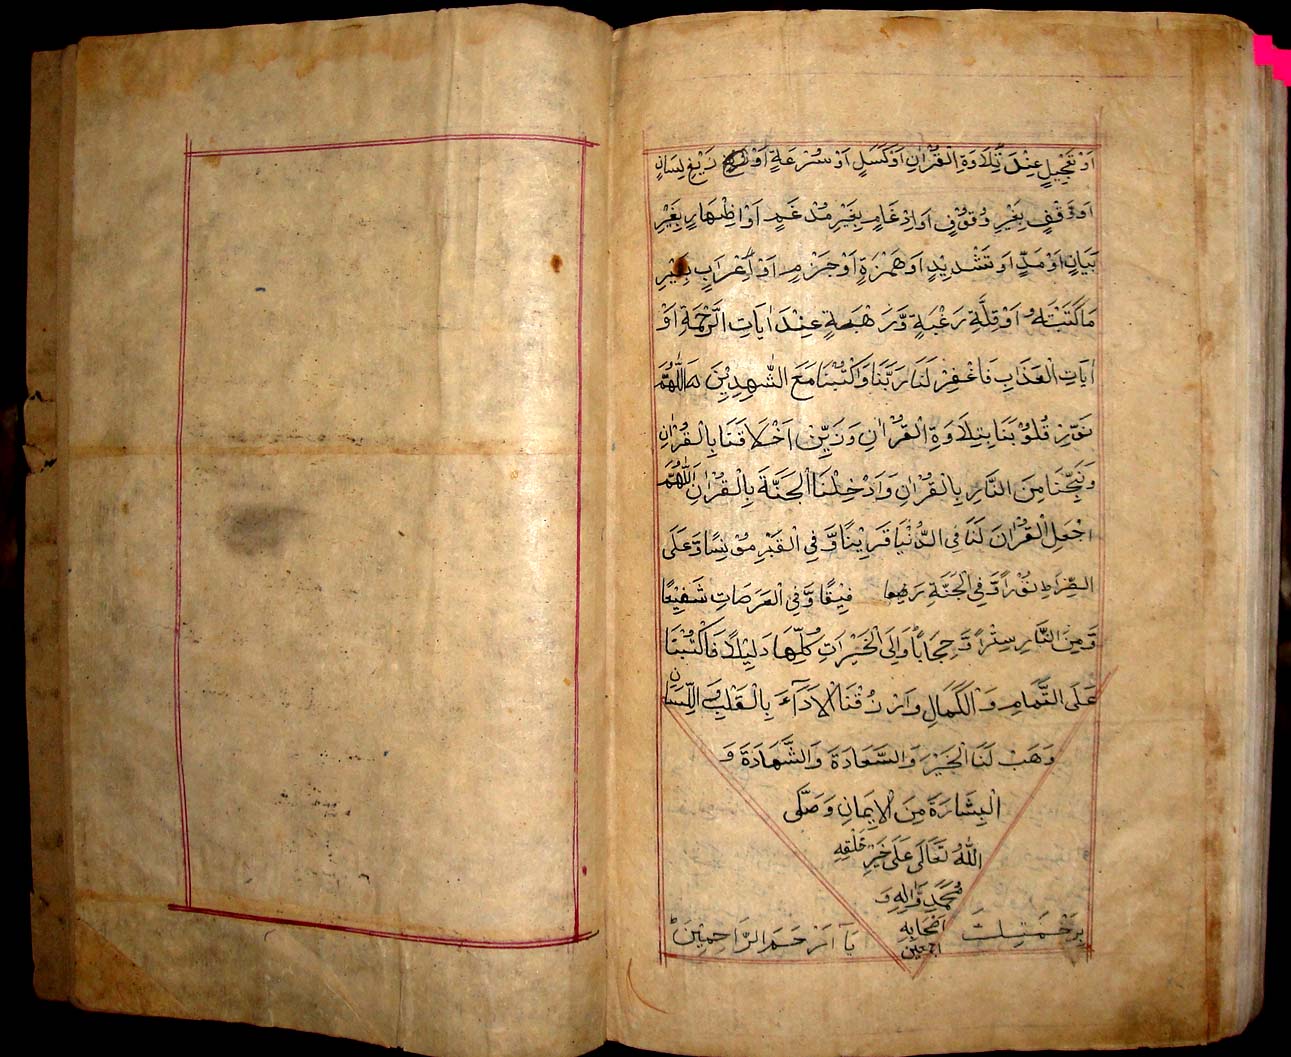 اَوْ تَعْجِيْلٍ عِنْدَ تِلَاوَةِ الْقُرْاٰنِ اَوْ كَسَلٍ اَوْ سُرْعَةٍ اَوْ زَيْغِ لِسَانٍ
اَوْ وَقْفٍ بِغَيْرِ وُقُوْفٍ اَوْ اِدْغَامٍ بِغَيْرِ مُدْغَمٍ اَوْ اِظْهَارٍ بِغَيْرِ
بَيَانٍ اَوْ مَدٍّ اَوْ تَشْدِيْدٍ اَوْ هَمْزَةٍ اَوْ جَزْمٍ اَوْ اِعْرَابٍ بِغَيْرِ
مَا كَتَبْتَهُ اَوْ قِلَّةِ رَغْبَةٍ وَّرَهْبَةٍ عِنْدَ اٰيَاتِ الرَّحْمَةِ اَوْ
اٰيَاتِ الْعَذَابِ فَاغْفِرْ لَنَا رَبَّنَا وَاكْتُبْنَا مَعَ الشّٰهِدِيْنَ اَللّٰهُمَّ
نَوِّرْ قُلُوْبَنَا بِتِلَاوَةِ الْقُرْاٰنِ وَزَيِّنْ اَخْلَاقَنَا بِالْقُرْاٰنِ
وَنَجِّنَا مِنَ النَّارِ بِالْقُرْاٰنِ وَاَدْخِلْنَا الْجَنَّةَ بِالْقُرْاٰنِ اَللّٰهُمَّ
اجْعَلِ الْقُرْاٰنَ لَنَا فِى الدُّنْيَا قَرِيْنًا وَّفِى الْقَبْرِ مُوْنِسًا وَّعَلَى
الصِّرَاطِ نُوْرًا وَّفِى الْجَنَّةِ رَفِيْقًا وَّفِى الْعَرَصَاتِ شَفِيْعًا
وَّمِنَ النَّارِ سِتْرًا وَّحِجَابًا وَّاِلَى الْخَيْرَاتِ كُلِّهَا دَلِيْلًا فَاكْتُبْنَا
عَلَى التَّمَامِ وَالْكَمَالِ وَارْزُقْنَا الْاَدَآءَ بِالْقَلْبِ وَ اللِّسَانِ
وَهَبْ لَنَا الْخَيْرَ وَالسَّعَادَةَ وَالشَّهَادَةَ وَ
الْبِشَارَةَ مِنَ الْاِيْمَانِ وَصَلَّى
اللّٰهُ تَعَالٰى عَلٰى خَيْرِ خَلْقِهٖ
مُحَمَّدٍ وَّاٰلِهٖ وَ
اَصْحَابِهٖ
اجمعين
بِرَحْمَتِكَ يَآ اَرْحَمَ الرَّاحِمِيْنَ